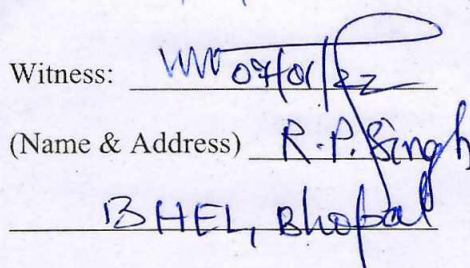 Witness: 07/01/22
(Name & Address) R.P. Singh
BHEL, Bhopal